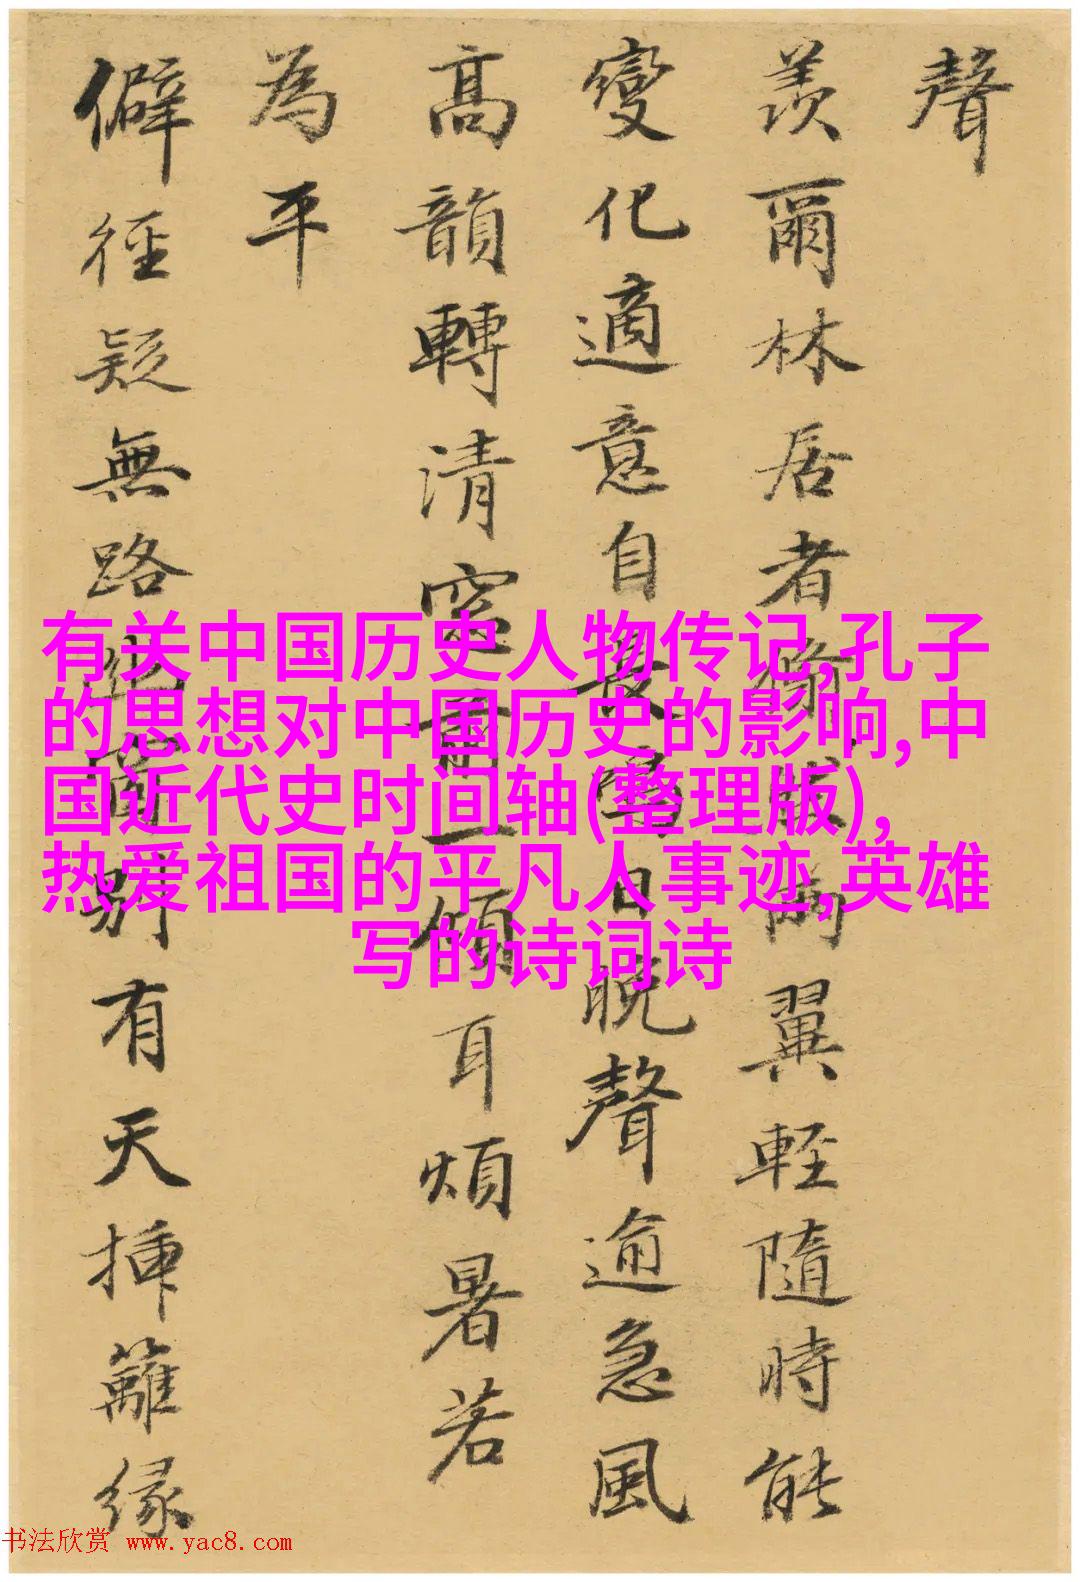 聲
羨爾林居者兩翼輕隨時能
變化適意自長鳴日晚聲逾急風
高韻轉清空齋一傾耳煩暑若
為平
僻徑疑無路別有天插籬緣
有关中国历史人物传记,孔子
的思想对中国历史的影响,中
国近代史时间轴(整理版),
热爱祖国的平凡人事迹,英雄
写的诗词诗
书法欣赏 www.yac8.com